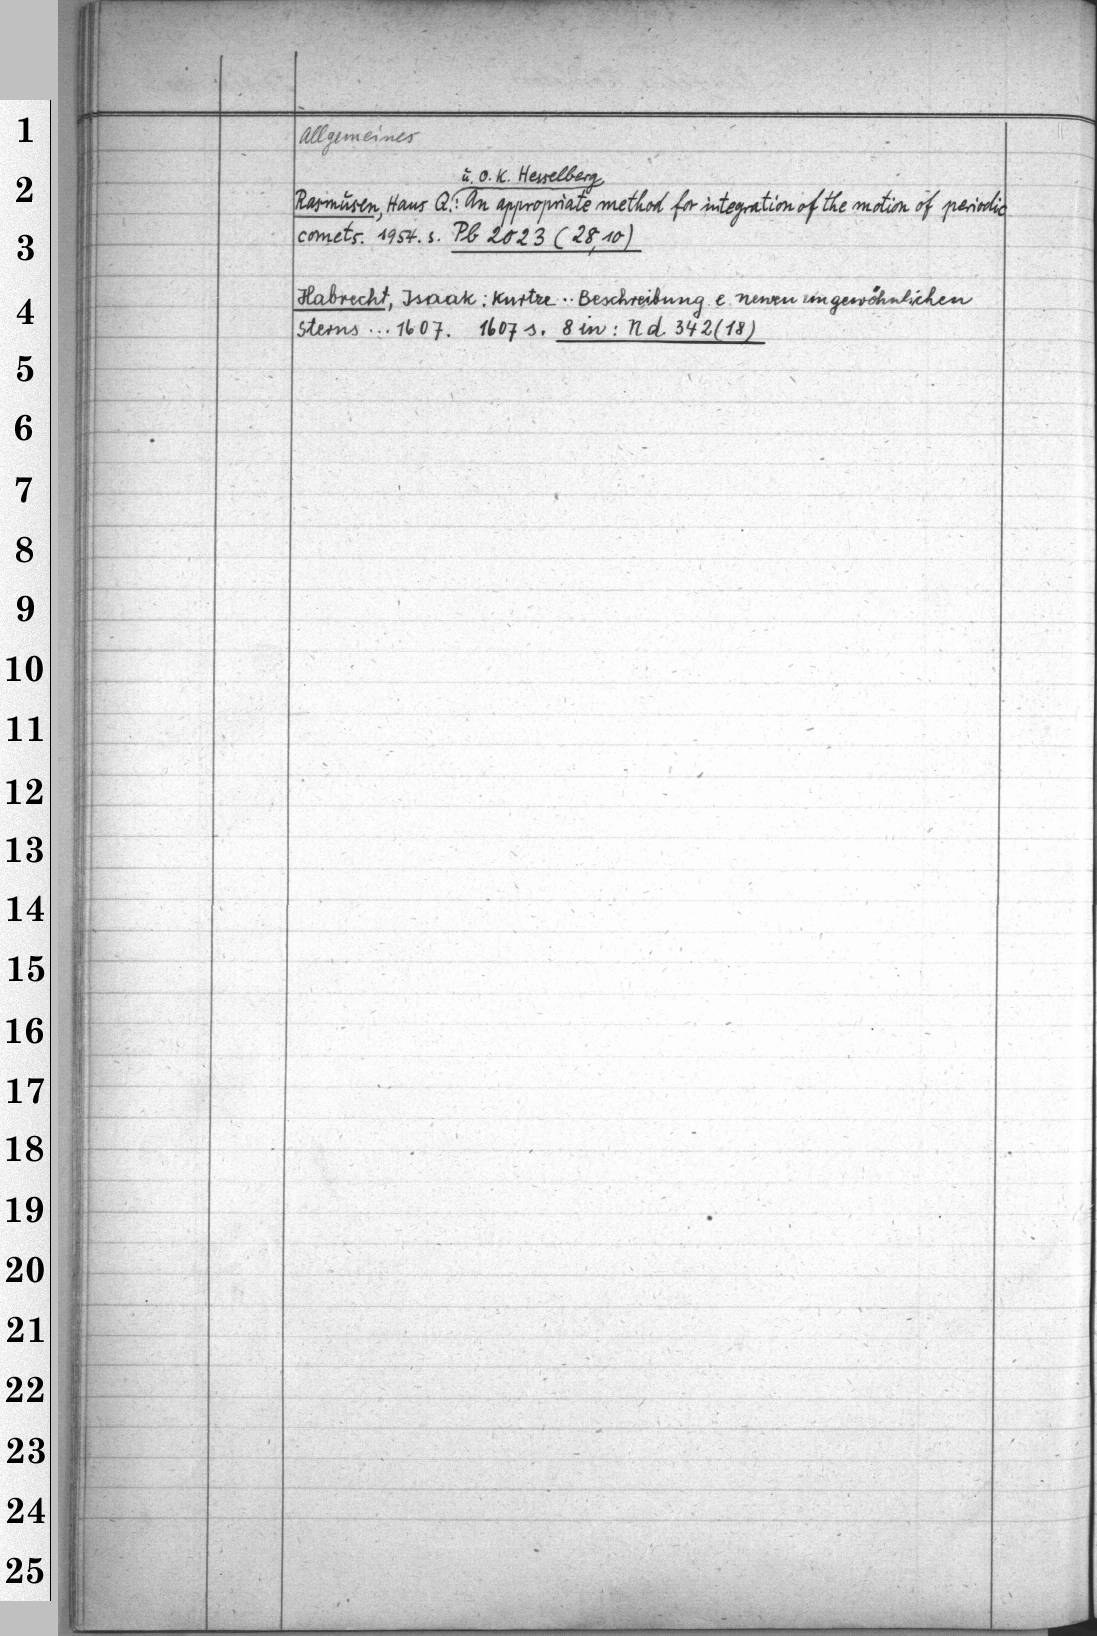 Allgemeines
u. O. K. Hesselberg
Rasmusen, Hans Q.: An appropriate method for integration of the motion of periodic
comets. 1954. s. Pb 2023 (28,10)
Habrecht, Isaak: Kurtze .. Beschreibung e. newen ungewöhnlichen
Sterns ... 1607. 1607 s. 8 in: Nd 342(18)
1
2
3
4
5
6
7
8
9
10
11
12
13
14
15
16
17
18
19
20
21
22
23
24
25